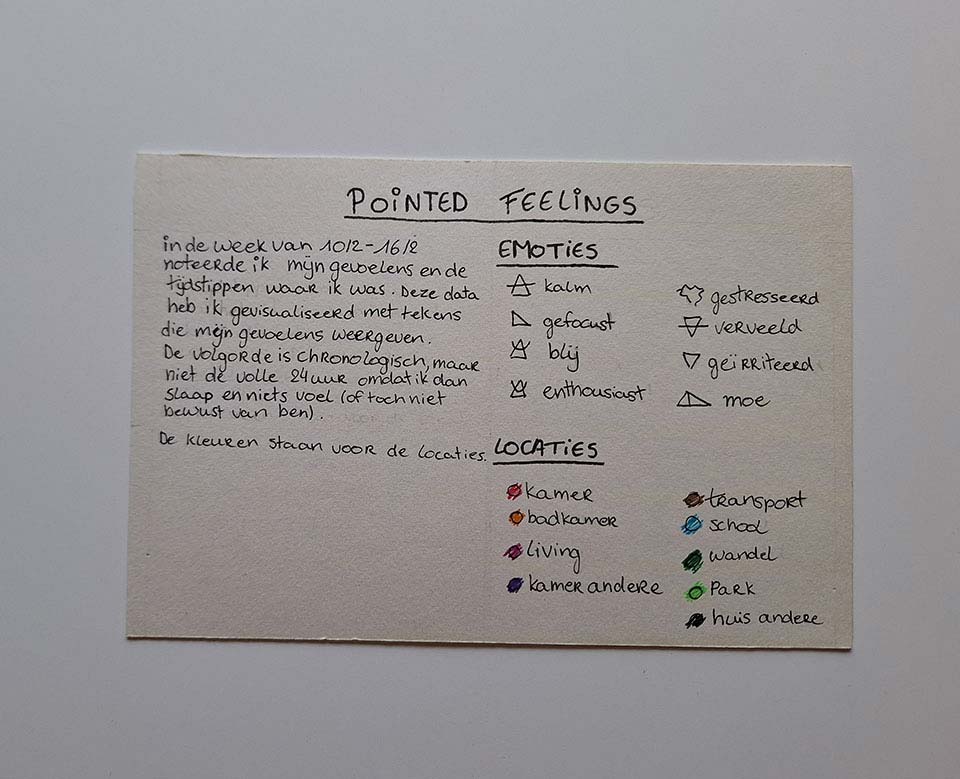 POINTED FEELINGS
in de week van 10/2-16/2
noteerde ik mijn gevoelens en de
tijdstippen waar ik was. Deze data
heb ik gevisualiseerd met tekens
die mijn gevoelens weergeven.
De volgorde is chronologisch, maar
niet de volle 24 uur omdat ik dan
slaap en niets voel (of toch niet
bewust van ben).
De kleuren staan voor de locaties.
EMOTIES
kalm
gefocust
blij
enthousiast
gestresseerd
verveeld
geïrriteerd
moe
LOCATIES
kamer
badkamer
living
kamer andere
transport
school
wandel
Park
huis andere